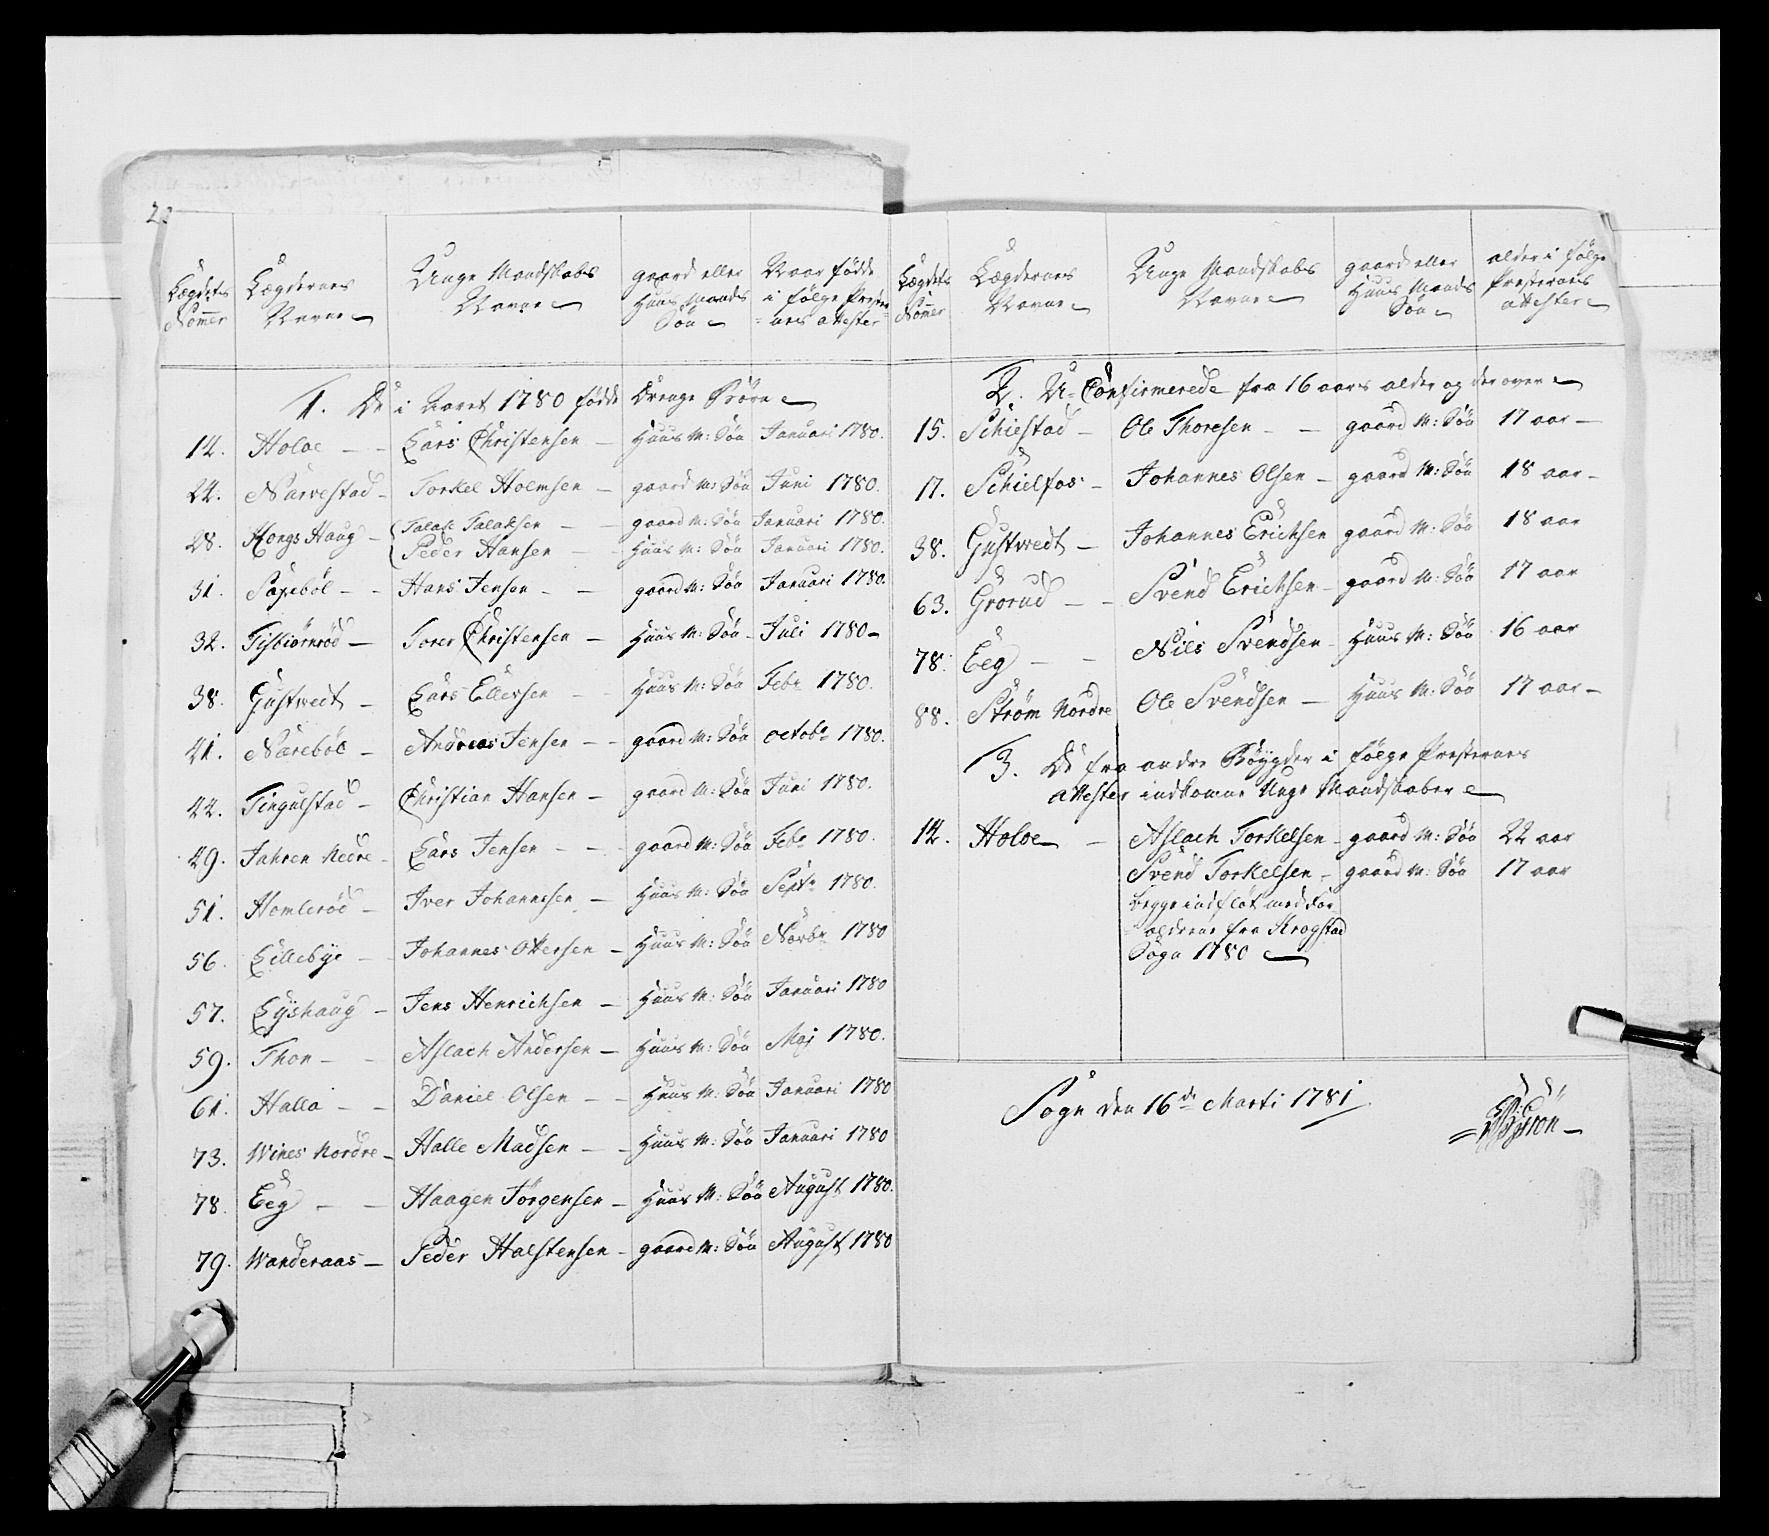 Lægdets Nommer | Lægdernes Navne | Unge Mandskabs Navne | gaard eller Huus Mands Søn | Naar födde i følge Presternes attester
1. De i Aaret 1780 födde Drenge Börn
14. Holoe — Lars Christensen — Huus M: Søn Januari 1780.
24. Narvestad — Torkel Holmsen — gaard M: Søn Juni 1780.
28. Kongs Haug — Talak Talaksen — gaard M: Søn Januari 1780.
Peder Hansen — Huus M: Søn Januari 1780.
31. Saxeböl — Hans Jensen — gaard M: Søn Januari 1780.
32. Tisbiörnröd — Torer Christensen — Huus M: Søn Juli 1780
38. Gustvedt — Lars Ellevsen — Huus M: Søn Febr 1780.
41. Nareböl — Andreas Jensen — gaard M: Søn octobr 1780.
42. Tingulstad — Christian Hansen — gaard M: Søn Juni 1780.
49. Jahren Nedre — Lars Jensen — gaard M: Søn Febr 1780.
51. Homleröd — Iver Johannesen — Huus M: Søn Septr 1780.
56. Lillebye — Johannes Ottersen — Huus M: Søn Novbr 1780
57. Lyshaug — Jens Henrichsen — Huus M: Søn Januari 1780
59. Thon — Aslach Andersen — Huus M: Søn Maj 1780.
61. Halla — Daniel Olsen — Huus M: Søn Januari 1780
73. Wines Nordre — Halle Madsen — Huus M: Søn Januari 1780
78. Eeg — Haagen Jörgensen — Huus M: Søn August 1780.
79. Wanderaas — Peder Halstensen — gaard M: Søn August 1780
Lægdets Nommer | Lægdernes Navne | Unge Mandskabs Navne | gaard eller Huus Mands Søn | alder i følge Presternes attester
2. U-Confirmerede fra 16 aars alder og derover
15. Schiestad — Ole Thoresen — gaard M: Søn 17 aar
17. Schielfos — Johannes Olsen — gaard M: Søn 18 aar
38. Gustvedt — Johannes Erichsen gaard M: Søn 18 aar
63. Grorud — Svend Erichsen — gaard M: Søn 17 aar
78. Eeg — Niels Svendsen — Huus M: Søn 16 aar
88. Strøm Nordre Ole Svendsen — Huus M: Søn 17 aar
3. De fra andre Böygder i følge Presternes
attester indkomne Unge Mandskaber
14. Holoe — Aslach Torkelsen — gaard M: Søn 22 aar
Svend Torkelsen — gaard M: Søn 17 aar
begge indfløt med for
ældrene fra Krogstad
Sogn 1780
Sogn den 16de Marti 1781